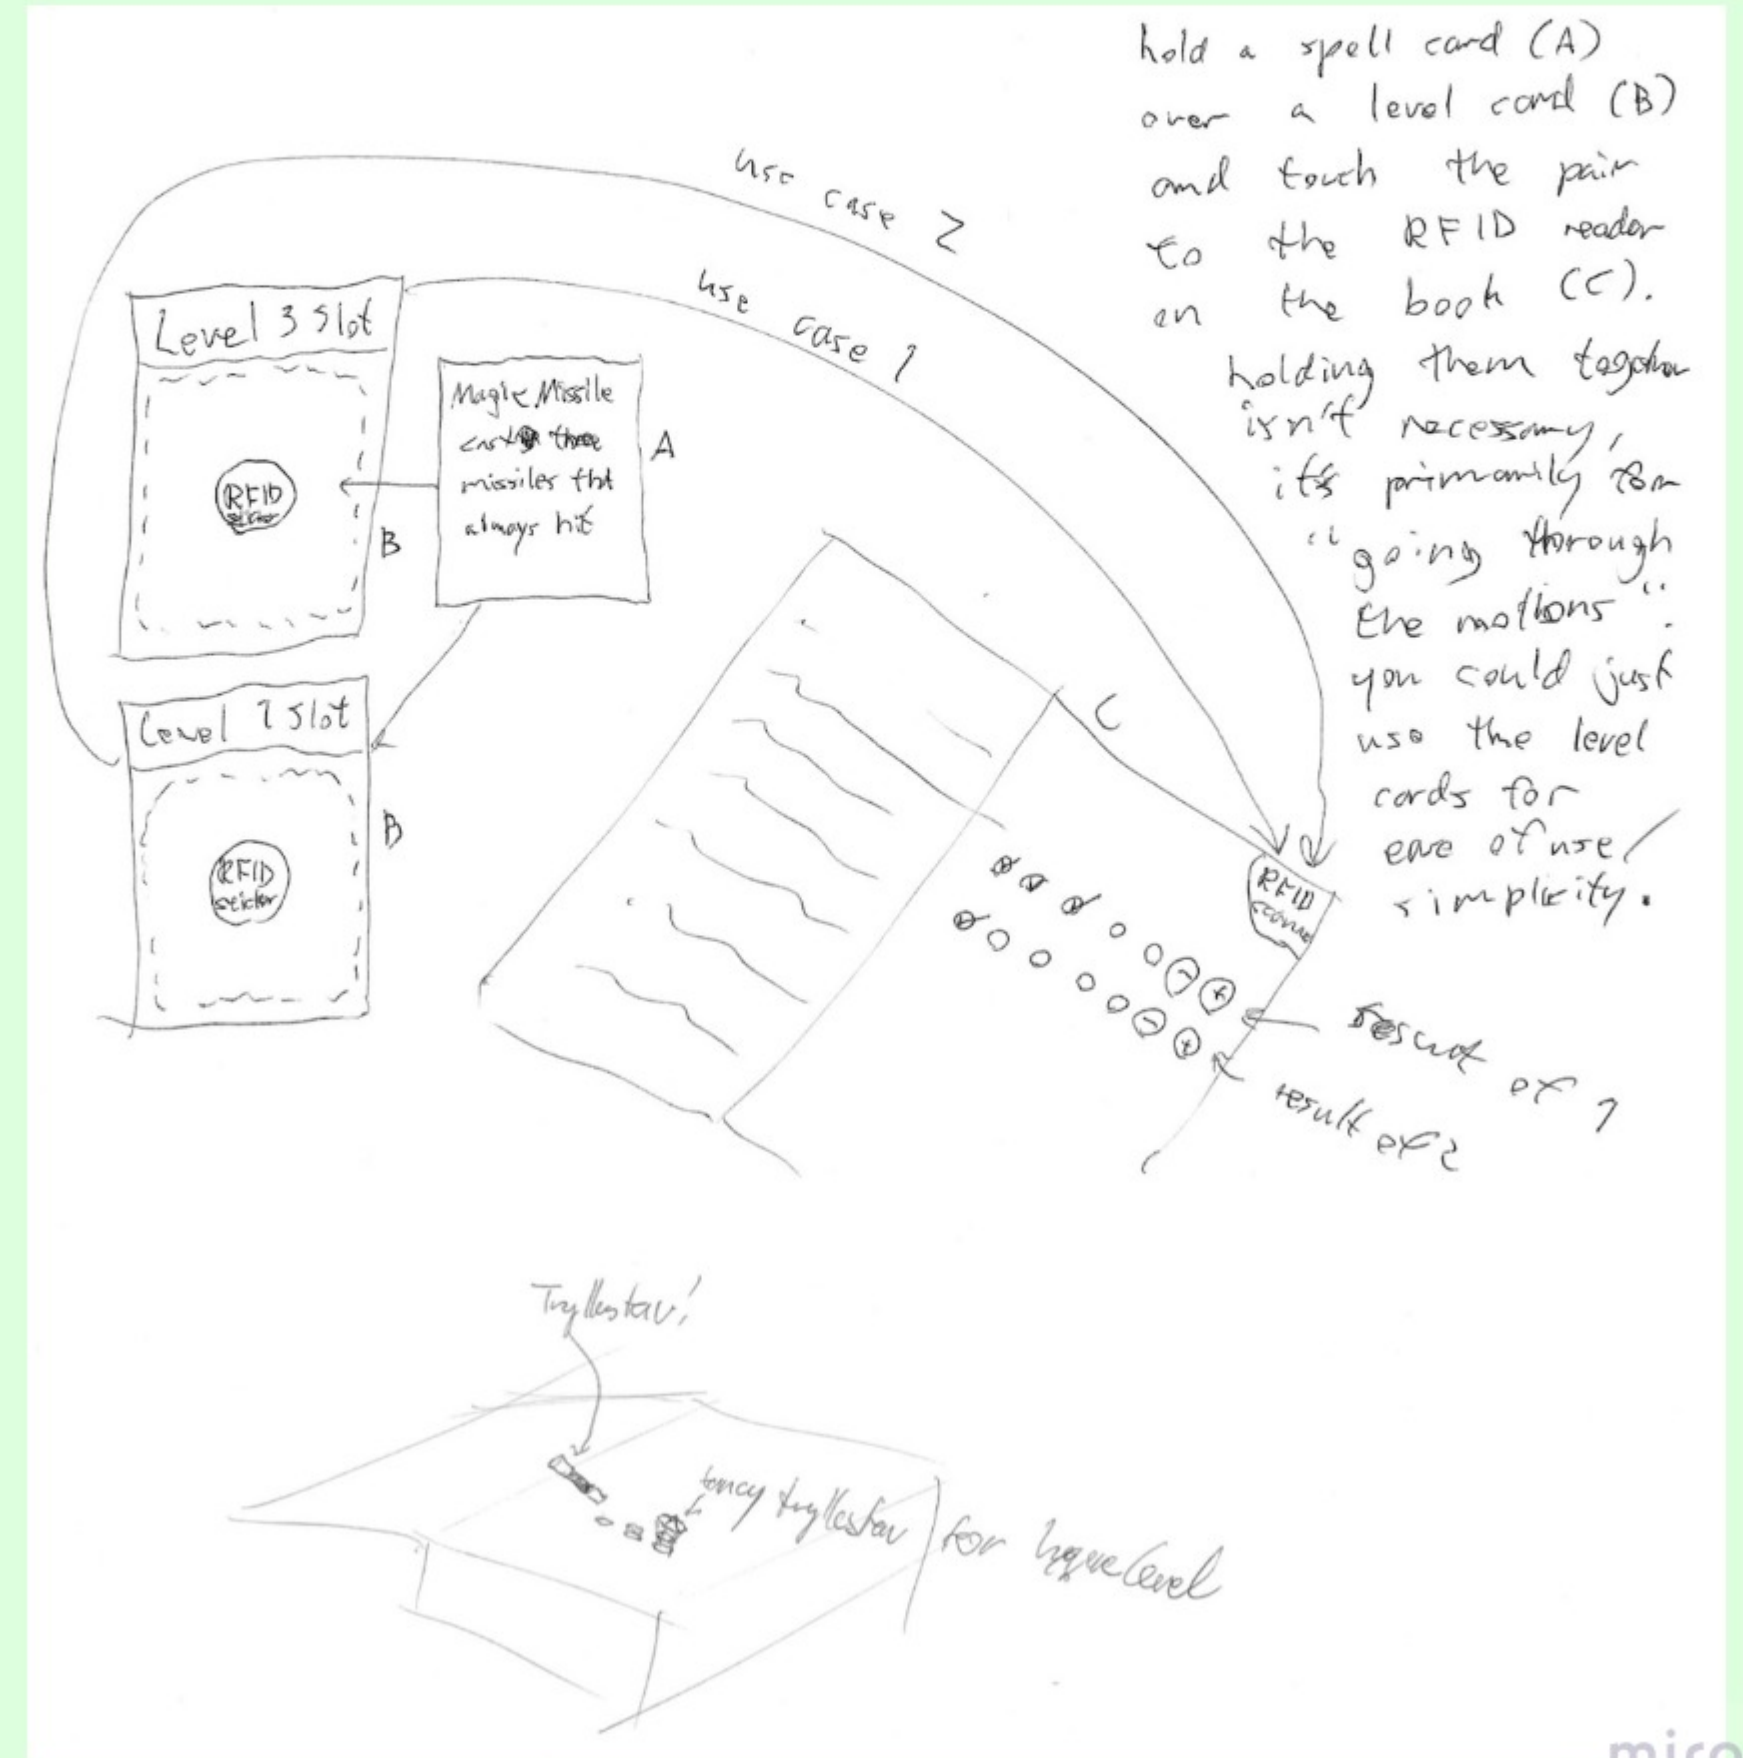 hold a spell card (A)
over a level card (B)
and touch the pair
to the RFID reader
on the book (C).
holding them together
isn't necessary,
it's primarily for
"going through
the motions".
you could just
use the level
cards for
ease of use/
simplicity.
use case 2
use case 1
Level 3 Slot
RFID
sticker
B
Magic Missile
cast three
missiles tht
always hit
A
Level 1 Slot
RFID
sticker
B
C
RFID
- +
- +
result of 1
result of 2
Tryllestav!
fancy tryllestav for level
miro